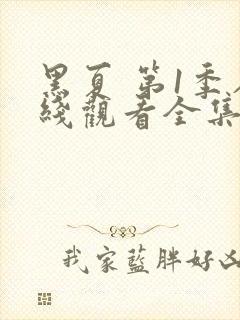 黑夏 第1季
綫觀看全集
我家藍胖好凶